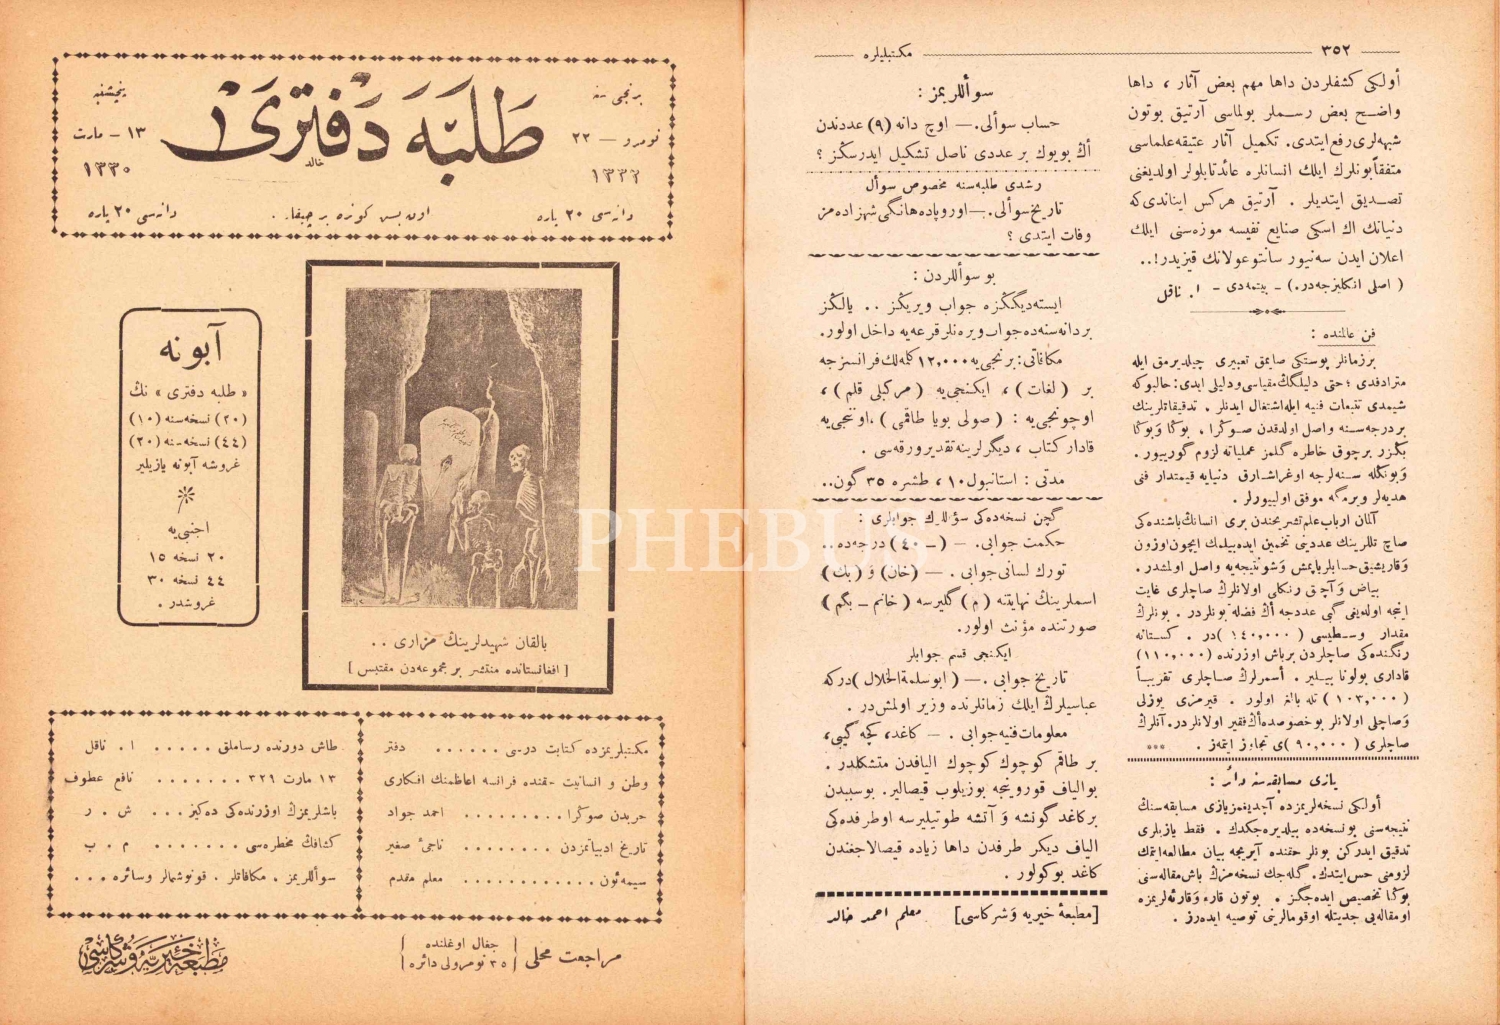 برنجی سنه
نومرو — ٢٢
١٣٣٢
طلبه دفتری
خالد
پنجشنبه
١٣ — مارت
١٣٣٠
دانه‌سی ٢٠ پاره
اون بش كونده بر چیقار . .
دانه‌سی ٢٠ پاره
آبونه
« طلبه دفتری » نڭ
(٢٠) نسخه‌سنه (١٠)
(٤٤) نسخه‌سنه (٢٠)
غروشه آبونه یازیلیر
اجنبی‌یه
٢٠ نسخه ١٥
٤٤ نسخه ٣٠
غروشدر .
بالقان شهیدلرینڭ مزاری . .
[ افغانستانده منتشر بر مجموعه‌دن مقتبس ]
مكتبلریمزده كتابت درسی . . . . . . دفتر
وطن و انسانیت حقنده فرانسه اعاظمنڭ افكاری
حربدن صوڭرا . . . . . . . . . احمد جواد
تاریخ ادبیاتمزدن . . . . . . . . ناجیٔ صغیر
سیمه‌ئون . . . . . . . . . . . . معلم مقدم
طاش دورنده رساملق . . . . . ا . ناقل
١٣ مارت ٣٢٩ . . . . . . . نافع عطوف
باشلریمزڭ اوزرنده‌كی ده‌كیز . . . ش . ر
كشافڭ مخطره‌سی . . . . . . . م . ب
سوأللریمز . مكافاتلر . قونوشمالر وسائره . . .
مراجعت محلی
جغال اوغلنده
٣٥ نومرولی دائره
مطبعهٔ خیریه و شركاسی
٣٥٢
مكتبلیلره
أولكی كشفلردن داها مهم بعض آثار ، داها
واضح بعض رسملر بولماسی آرتیق بوتون
شبهه‌لری رفع ایتدی. تكمیل آثار عتیقه علماسی
متفقاً بونلرڭ ایلك انسانلره عائد تابلولر اولدیغنی
تصدیق ایتدیلر . آرتیق هركس ایناندی كه
دنیانڭ اڭ اسكی صنایع نفیسه موزه‌سنی ایلك
اعلان ایدن سه‌نیور سانتوعولانڭ قیزیدر!..
( اصلی انكلیزجه‌در.) ـ بیتمه‌دی ـ ا. ناقل
فن عالمنده :
برزمانلر پوستكی صایمق تعبیری چیلدیرمق ایله
مترادفدی ؛ حتی دلیلگڭ مقیاسی و دلیلی ایدی: حالبوكه
شیمدی تتبعات فنیه ایله اشتغال ایدنلر . تدقیقاتلرینڭ
بر درجه‌سنه واصل اولدقدن صوڭرا ، بوڭا وبوڭا
بڭزر برچوق خاطره گلمز عملیاته لزوم گوریبور .
وبونڭله سنه‌لرجه اوغراشارق دنیایه قیمتدار فنی
هدیه‌لر ویرمگه موفق اولیبورلر .
آلمان ارباب علم تشریحندن بری انسانڭ باشنده‌كی
صاچ تللرینڭ عددینی تخمین ایده‌بیلمك ایچون اوزون
وقاریشیق حسابلر یاپمش وشو نتیجه‌یه واصل اولمشدر .
بیاض وآچیق رنكلی اولانلرڭ صاچلری غایت
اینجه اوله‌یغی گبی عددجه أڭ فضله بونلردر . بونلرڭ
مقدار وسطیسی ( ١٤٠,٠٠٠ )در . كستانه
رنگنده‌كی صاچلردن برباش اوزرنده (١١٠,٠٠٠)
قاداری بولونا بیلیر . أسمرلرڭ صاچلری تقریباً
( ١٠٣,٠٠٠ ) تله بالغ اولور . قیرمزی یوزلی
وصاچلی اولانلر بوخصوصده أڭ فقیر اولانلردر. آنلرڭ
صاچلری ( ٩٠,٠٠٠ )ی تجاوز ایتمز . ***
یازی مسابقه‌سنه دائر :
أولكی نسخه‌لریمزده آچدیغمز یازی مسابقه‌سنڭ
نتیجه‌سنی بونسخه‌ده بیلدیره‌جكدك . فقط یازیلری
تدقیق ایدركن بونلر حقنده آیریجه بیان مطالعه ایتمك
لزومنی حس ایتدك. گله‌جك نسخه‌مزڭ باش مقاله‌سنی
بوڭا تخصیص ایده‌جگز . بوتون قارء وقارئه‌لریمزه
اومقاله‌یی جدیتله اوقومالرینی توصیه ایده‌رز .
سوأللریمز :
حساب سوألی.— اوچ دانه (٩) عددندن
أڭ بویوك بر عددی ناصل تشكیل ایدرسڭز ؟
رشدی طلبه‌سنه مخصوص سوأل
تاریخ سوألی.— اوروپاده هانگی شهزاده‌مز
وفات ایتدی ؟
بو سوأللردن :
ایسته‌دیگڭزه جواب ویریڭز . . یالڭز
بردانه‌سنه‌ده جواب ویره‌نلر قرعه‌یه داخل اولور.
مكافاتی: برنجی‌یه ١٢,٠٠٠ كلمه‌لك فرانسزجه
بر ( لغات ) ، ایكنجی‌یه ( مركبلی قلم ) ،
اوچونجی‌یه : ( صولی بویا طاقمی ) ، اوننجی‌یه
قادار كتاب ، دیگرلرینه تقدیر ورقه‌سی .
مدتی : استانبول ١٠ ، طشره ٣٥ گون..
گچن نسخه‌ده‌كی سؤاللرڭ جوابلری :
حكمت جوابی. — ( ـ ٤٠) درجه‌ده . .
تورك لسانی جوابی . — (خان) و ( بك )
اسملرینڭ نهایتنه (م) گلیرسه ( خانم ـ بگم )
صورتنده مؤنث اولور.
ایكنجی قسم جوابلر
تاریخ جوابی .— ( ابوسلمة‌الخلال ) در كه
عباسیلرڭ ایلك زمانلرنده وزیر اولمش‌در .
معلومات فنیه جوابی . — كاغد، كچه گیبی،
بر طاقم كوچوك كوچوك الیافدن متشكلدر .
بوالیاف قورونجه بوزیلوب قیصالیر. بوسببدن
بركاغد گونشه و آتشه طوتیلیرسه او طرفده‌كی
الیاف دیگر طرفدن داها زیاده قیصالاجغندن
كاغد بوكولور .
[مطبعهٔ خیریه وشركاسی] معلم احمد خالد
PHEBUS